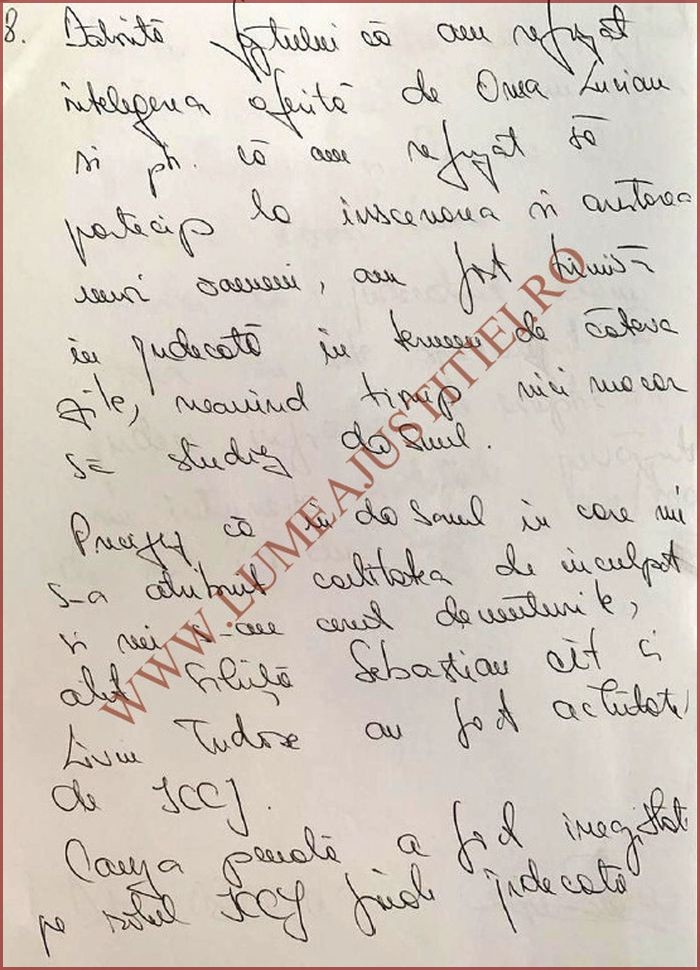 8. Datorită faptului că am refuzat
intelegerea oferită de Onea Lucian
si pt. că am refuzat să
particip la inscenarea si arestarea
unor oameni, am fost trimisă
in judecată în termen de câteva
zile, neavând timp nici macar
să studiez dosarul.
Precizez că în dosarul in care mi
s-a atribuit calitatea de inculpat
si mi s-au cerut denunturile,
atât Ghiță Sebastian cât și
Liviu Tudose au fost achitati
de ICCJ.
Cauza penală a fost inregistrată
pe rolul ICCJ fiind judecată
WWW.LUMEAJUSTITIEI.RO